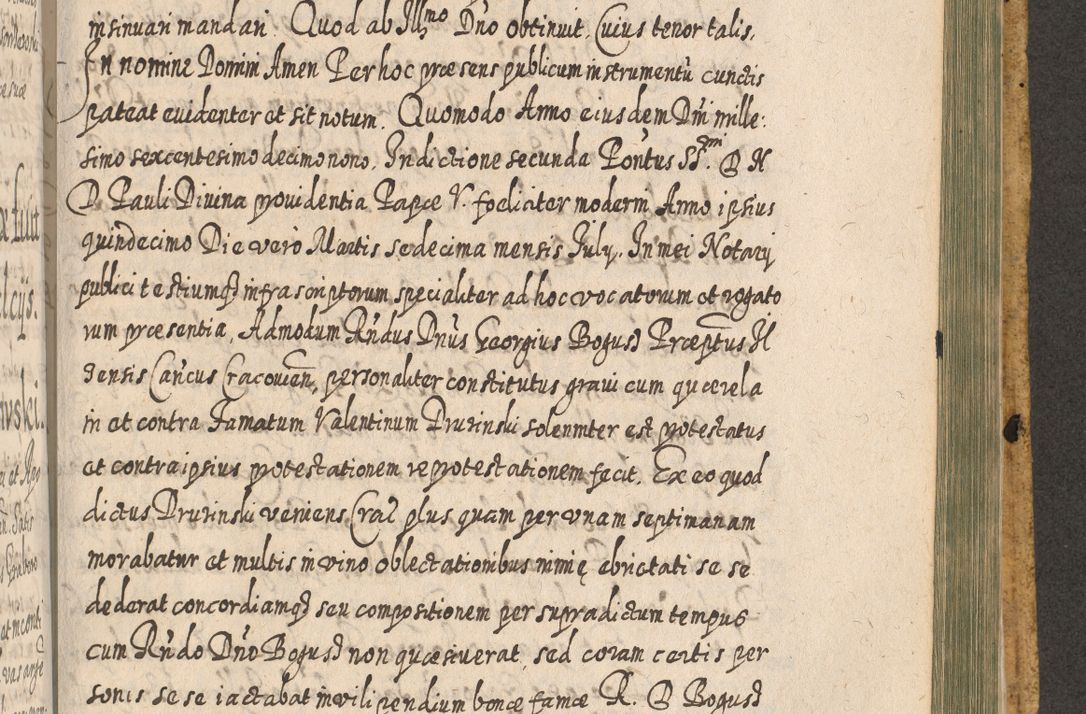 insinuari mandari. Quod ab Illmo Dno obtinuit, Cuius tenor talis.
In nomine Domini Amen Per hoc præsens publicum instrumentũ cunctis
pateat euidenter et sit notum. Quomodo Anno eiusdem Dñi mille:
simo sexcentesimo decimonono, Indictione secunda Pontus SSmi. D N
D. Pauli Diuina prouidentia Papæ V. foeliciter moderni Anno ipsius
quindecimo Die vero Martis sedecima mensis July. In mei Notary
publici testiumq infrascriptorum specialiter ad hoc vocatorum et rogato
rum præsentia, Admodum Rñdus Dñus Georgius Bogus Præptus Il
zensis Cancus Cracovien, personaliter constitutus graui cum quærela
in et contra Famatum Valentinum Druzinski solenniter est protestatus
et contra ipsius protestationem reprotestationem fecit. Ex eo quod
dictus Druzinski veniens Crac plus quam per vnam septimanam
morabatur et multis in vino oblectationibus nimię ebrietati se se
dederat concordiamq seu compositionem per supradictum tempus
cum Rñdo Dño Bogus non quæsiuerat, sed coram certis per
sonis se se iactabat in vilipendium bonæ famæ R. D Bogus